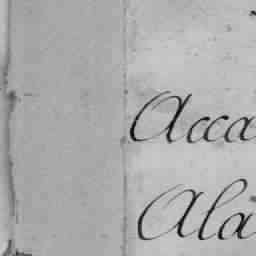 Acca
Ala